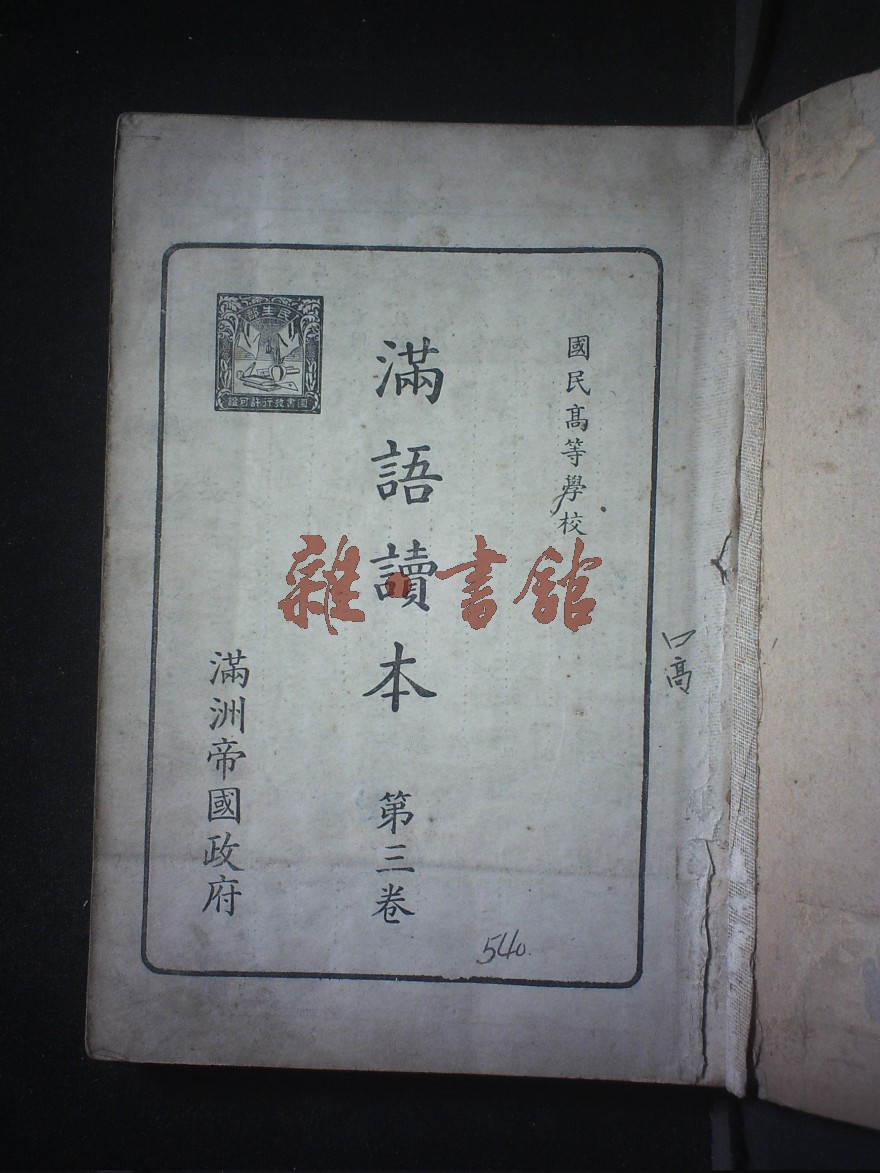 國民高等學校
滿語讀本 第三卷
滿洲帝國政府
民生部
圖書發行許可證
雜·書館
口高
540.